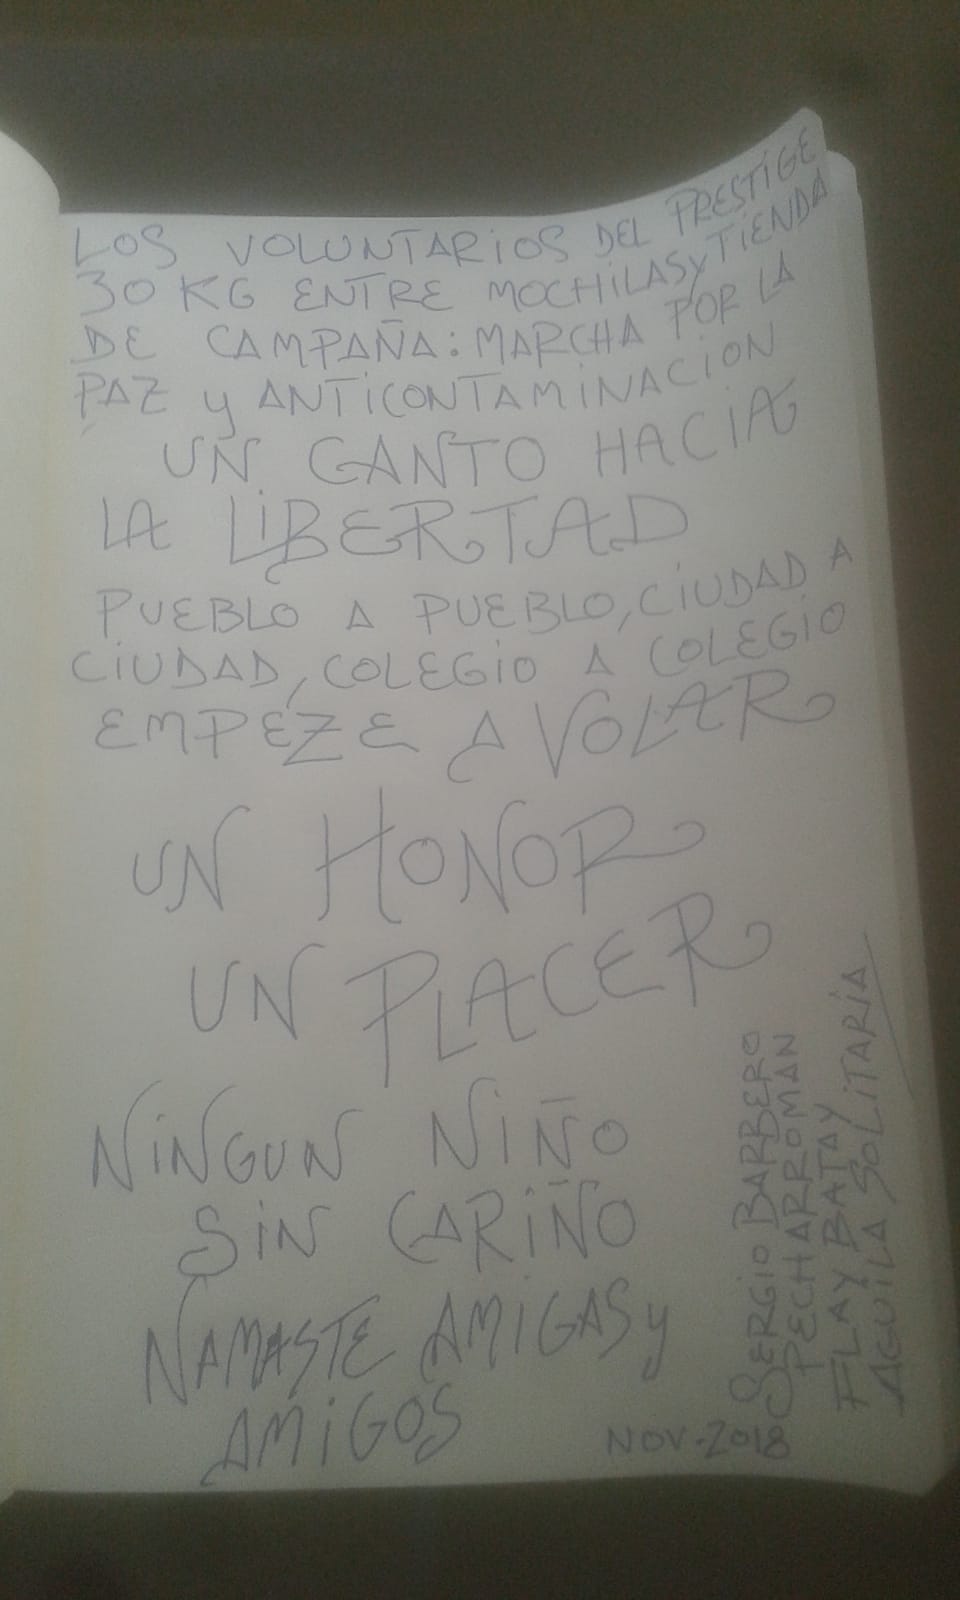 LOS VOLUNTARIOS DEL PRESTIGE
30 KG ENTRE MOCHILAS y TIENDA
DE CAMPAÑA: MARCHA POR LA
PAZ y ANTICONTAMINACION
UN CANTO HACIA
LA LIBERTAD
PUEBLO A PUEBLO, CIUDAD A
CIUDAD, COLEGIO A COLEGIO
EMPEZE A VOLAR
UN HONOR
UN PLACER
NINGUN NIÑO
SIN CARIÑO
NAMASTE AMIGAS y
AMIGOS
SERGIO BARBERO
PECHARROMAN
FLAY BATAY
AGUILA SOLITARÍA
NOV-2018